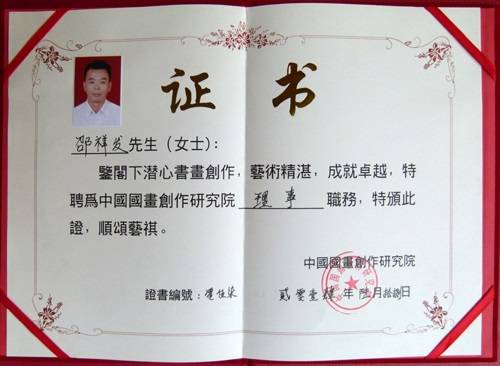 证书
邵祥发先生（女士）：
鑒閣下潛心書畫創作，藝術精湛，成就卓越，特
聘爲中國國畫創作研究院 理事 職務，特頒此
證，順頌藝祺。
中國國畫創作研究院
證書編號：
貳零壹肆年陸月拾捌日